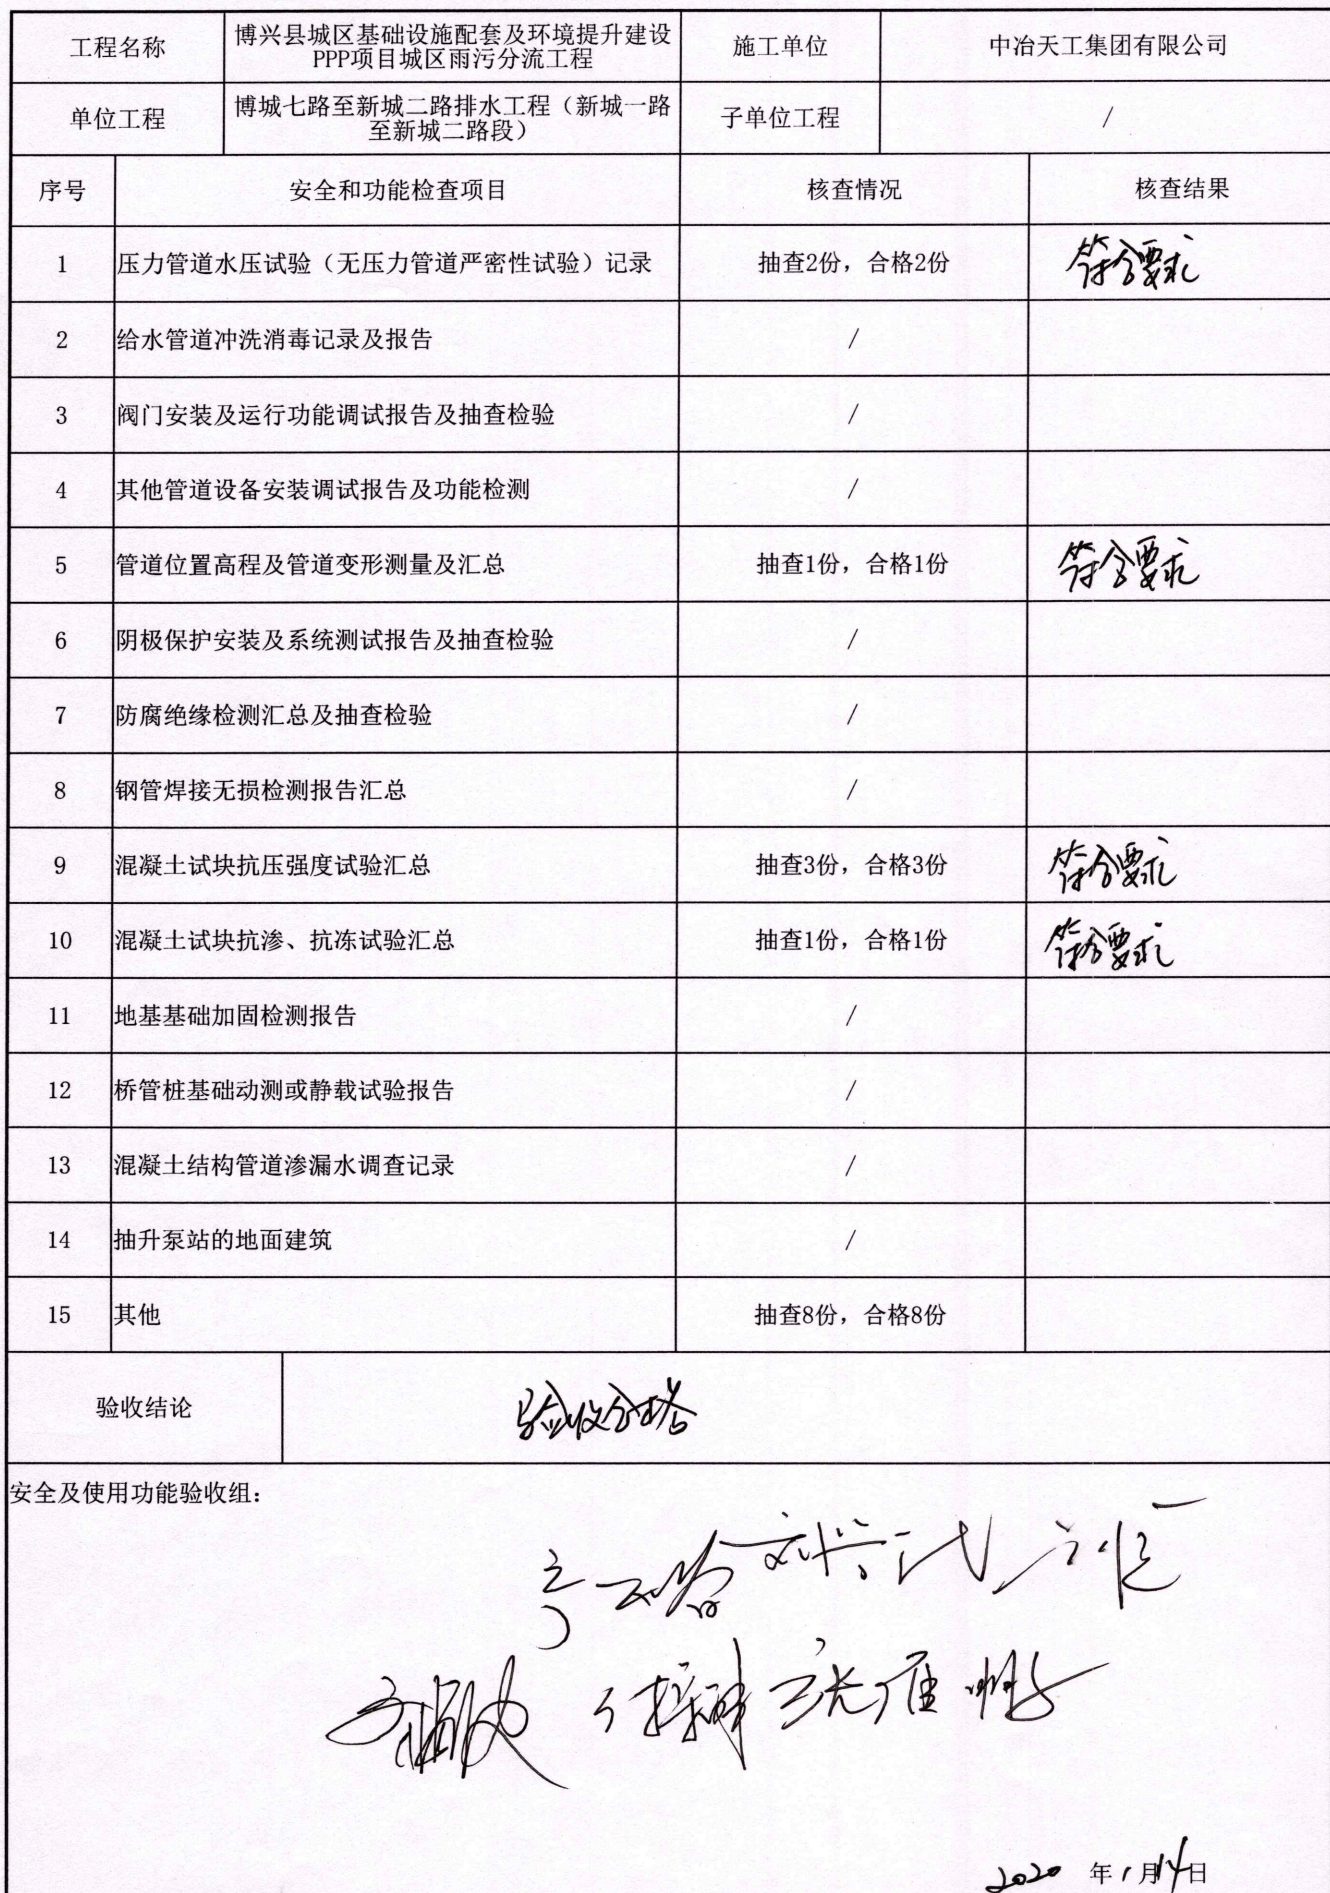 工程名称
博兴县城区基础设施配套及环境提升建设
PPP项目城区雨污分流工程
施工单位
中冶天工集团有限公司
单位工程
博城七路至新城二路排水工程（新城一路
至新城二路段）
子单位工程
/
序号 安全和功能检查项目 核查情况 核查结果
1 压力管道水压试验（无压力管道严密性试验）记录 抽查2份，合格2份 符合要求
2 给水管道冲洗消毒记录及报告 /
3 阀门安装及运行功能调试报告及抽查检验 /
4 其他管道设备安装调试报告及功能检测 /
5 管道位置高程及管道变形测量及汇总 抽查1份，合格1份 符合要求
6 阴极保护安装及系统测试报告及抽查检验 /
7 防腐绝缘检测汇总及抽查检验 /
8 钢管焊接无损检测报告汇总 /
9 混凝土试块抗压强度试验汇总 抽查3份，合格3份 符合要求
10 混凝土试块抗渗、抗冻试验汇总 抽查1份，合格1份 符合要求
11 地基基础加固检测报告 /
12 桥管桩基础动测或静载试验报告 /
13 混凝土结构管道渗漏水调查记录 /
14 抽升泵站的地面建筑 /
15 其他 抽查8份，合格8份
验收结论 验收合格
安全及使用功能验收组：
2020 年1月14日